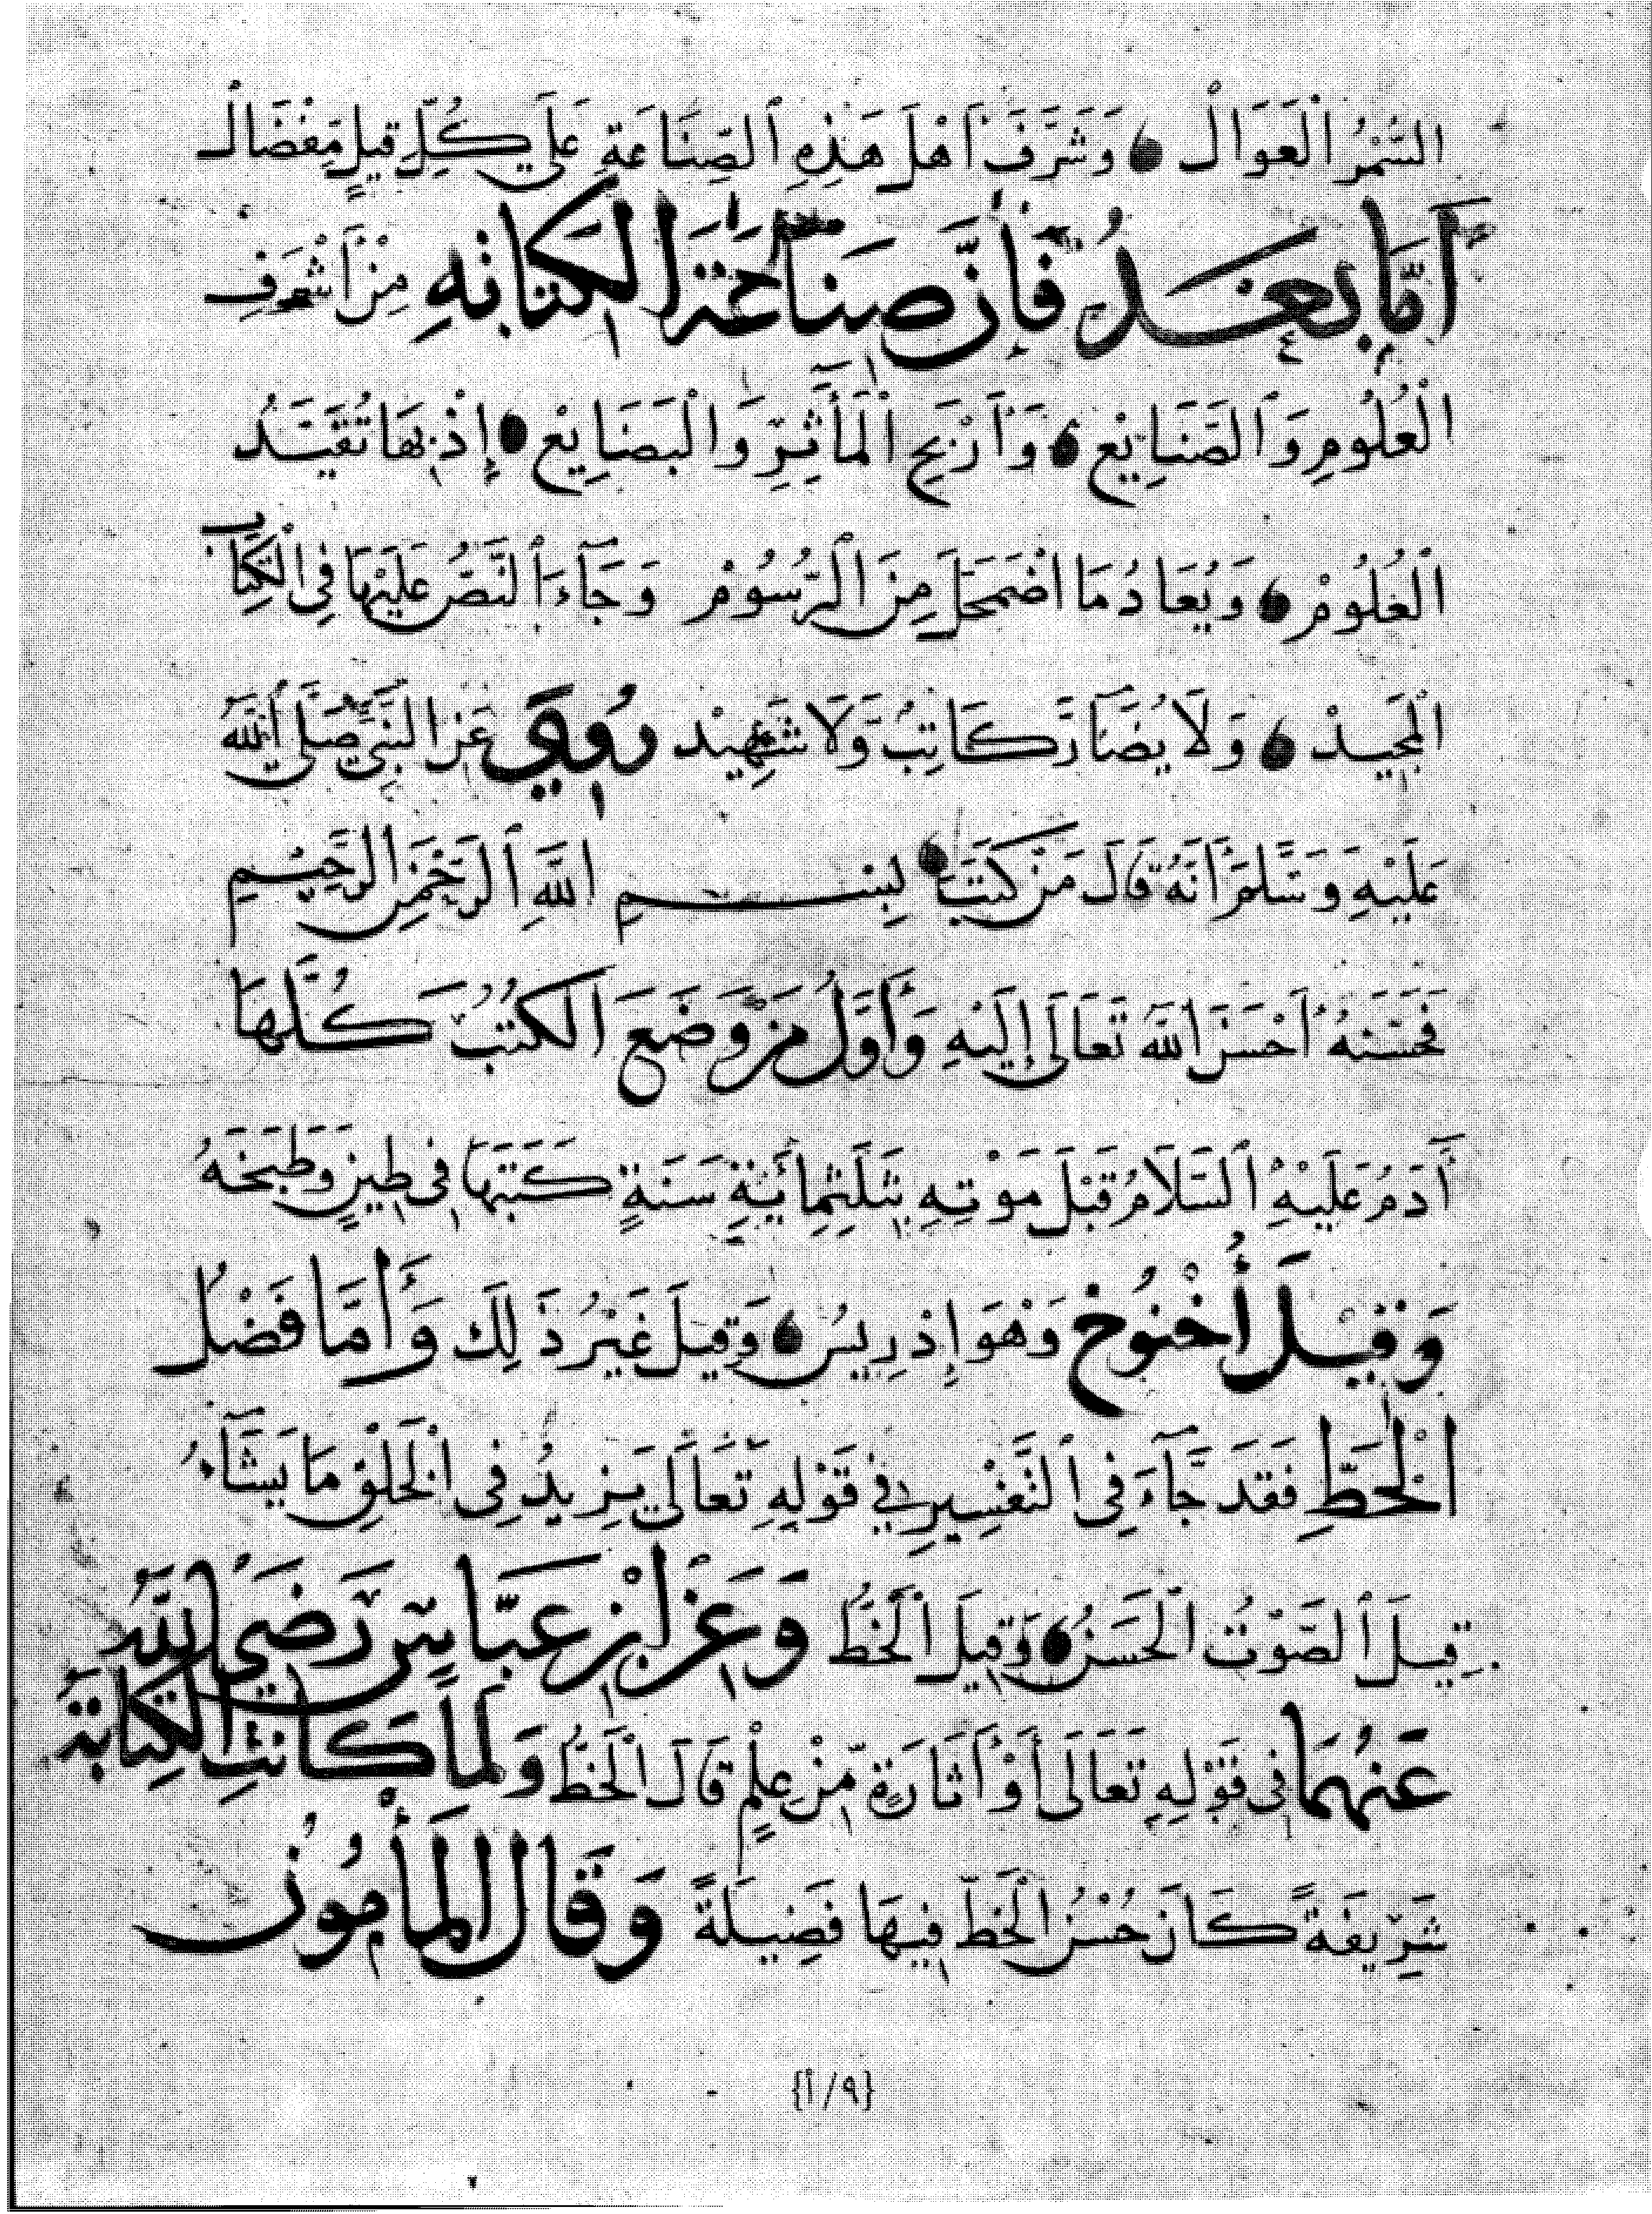 السُّمْرُ الْعَوَالْ وَشَرَّفَ أَهْلَ هَذِهِ الصِّنَاعَةِ عَلَى كُلِّ قِيلٍ مِفْضَالْ
أَمَّا بَعْدُ فَإِنَّ صِنَاعَةَ الْكِتَابَةِ مِنْ أَشْرَفِ
الْعُلُومِ وَالصَّنَايِعْ وَأَرْبَحِ الْمَآثِرِ وَالْبَضَايِعْ إِذْ بِهَا تُقَيَّدُ
الْعُلُومْ وَيُعَادُ مَا اضْمَحَلَ مِنَ الرُّسُومْ وَجَآءَ النَّصُّ عَلَيْهَا فِي الْكِتَابِ
الْمَجِيدْ وَلَا يُضَآرَّ كَاتِبٌ وَّلَا شَهِيْد رُوِيَ عَنِ النَّبِيِّ صَلَّى اللَّهُ
عَلَيْهِ وَسَلَّمَ أَنَّهُ قَالَ مَنْ كَتَبَ بِسْمِ اللَّهِ الرَّحْمَنِ الرَّحِيمِ
فَحَسَّنَهُ أَحْسَنَ اللَّهُ تَعَالَى إِلَيْهِ وَأَوَّلُ مَنْ وَضَعَ الْكُتُبَ كُلَّهَا
أَدَمُ عَلَيْهِ السَّلَامُ قَبْلَ مَوْتِهِ بِثَلَثِمِائَةِ سَنَةٍ كَتَبَهَا فِي طِينٍ وَطَبَخَهُ
وَقِيْلَ أُخْنُوخُ وَهْوَ إِدْرِيسُ وَقِيلَ غَيْرُ ذَلِكَ وَأَمَّا فَضْلُ
الْخَطِّ فَقَدْ جَّآءَ فِي التَّفْسِيرِ فِي قَوْلِهِ تَعَالَى يَزِيدُ فِي الْخَلْقِ مَا يَشَآءُ
قِيلَ الصَّوْتُ الْحَسَنُ وَقِيلَ الْخَطُّ وَعَنِ ابْنِ عَبَّاسٍ رَضِيَ اللَّهُ
عَنْهُمَا فِي قَوْلِهِ تَعَالَى أَوْ أَثَارَةٍ مِّنْ عِلْمٍ قَالَ الْخَطُّ وَلَمَّا كَانَتِ الْكِتَابَةُ
شَرِيفَةً كَانَ حُسْنُ الْخَطِّ فِيهَا فَضِيلَةً وَقَالَ الْمَأْمُونُ
{٩/أ}